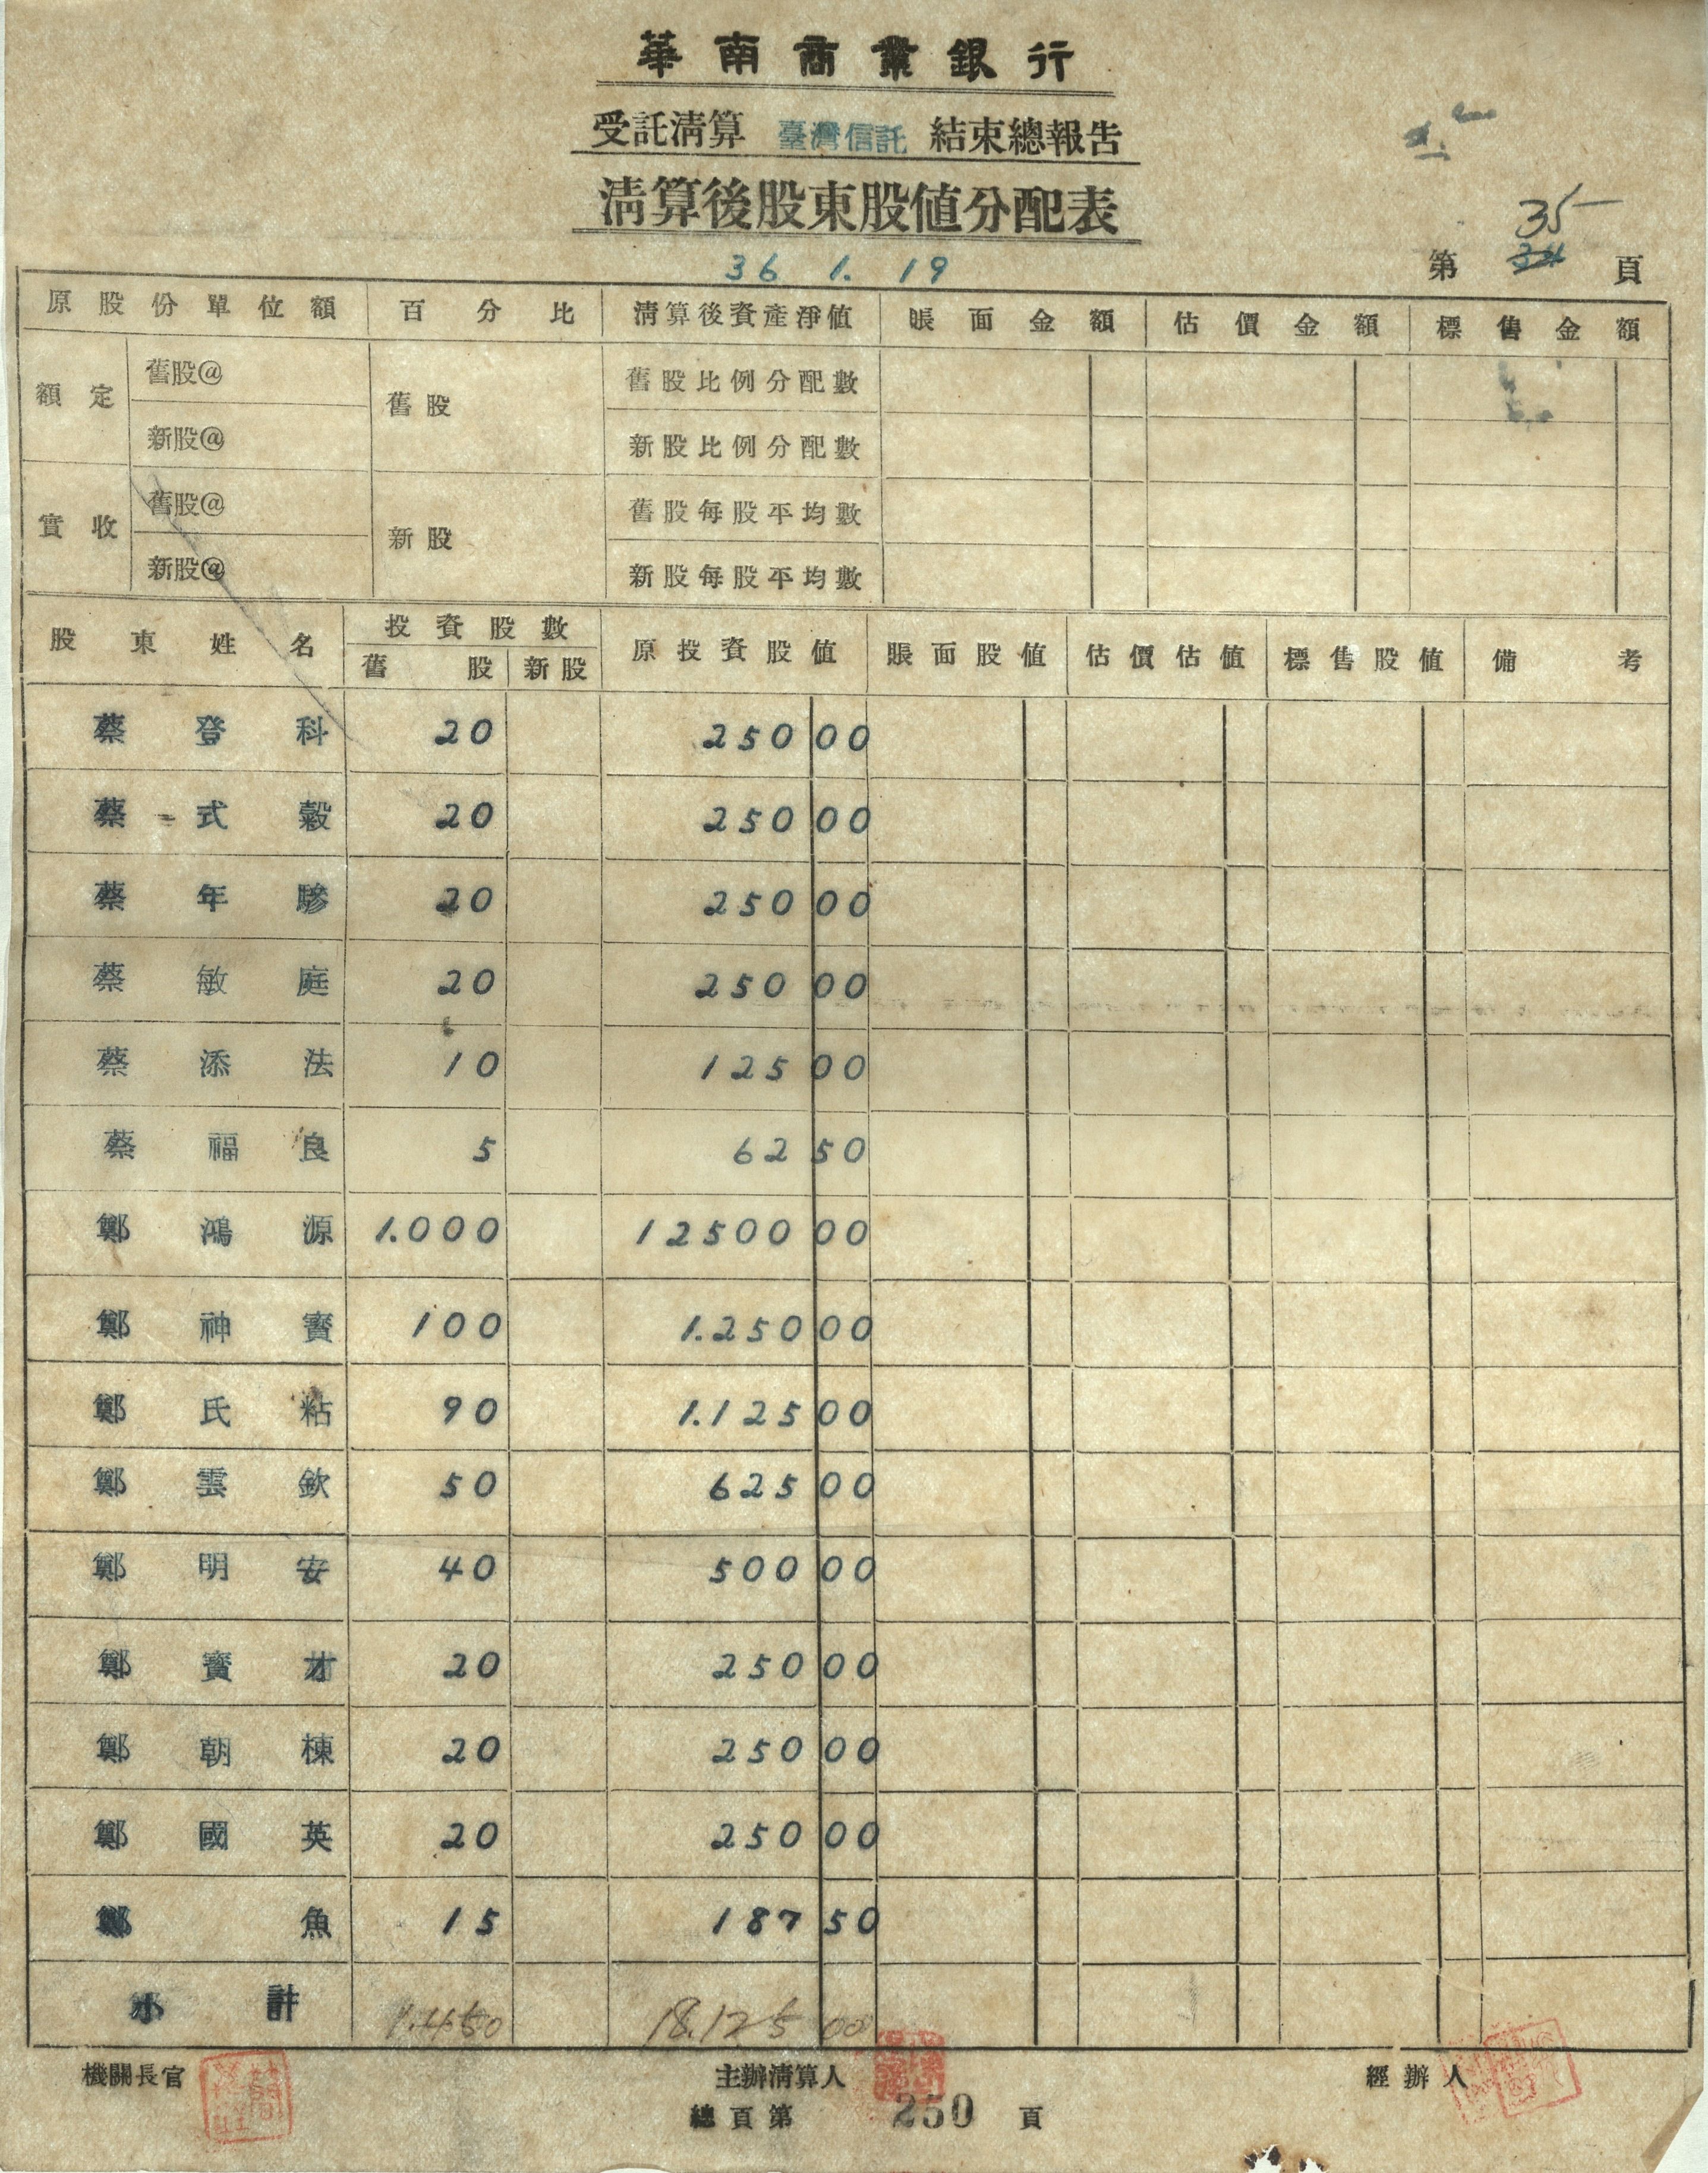 華南商業銀行
受託清算 臺灣信託 結束總報告
清算後股東股值分配表
36 1. 19
第 35 頁
原股份單位額 百分比 清算後資產淨值 賬面金額 估價金額 標售金額
額定 舊股@ 舊股 舊股比例分配數
新股@ 新股比例分配數
實收 舊股@ 新股 舊股每股平均數
新股@ 新股每股平均數
股東姓名 投資股數 原投資股值 賬面股值 估價估值 標售股值 備考
舊股 新股
蔡登科 20 250 00
蔡式穀 20 250 00
蔡年驂 20 250 00
蔡敏庭 20 250 00
蔡添法 10 125 00
蔡福良 5 62 50
鄭鴻源 1.000 12500 00
鄭神寶 100 1.250 00
鄭氏粘 90 1.125 00
鄭雲欽 50 625 00
鄭明安 40 500 00
鄭寶才 20 250 00
鄭朝棟 20 250 00
鄭國英 20 250 00
鄭魚 15 187 50
小計 1.450 18.125 00
機關長官 主辦清算人 經辦人
總頁第 250 頁